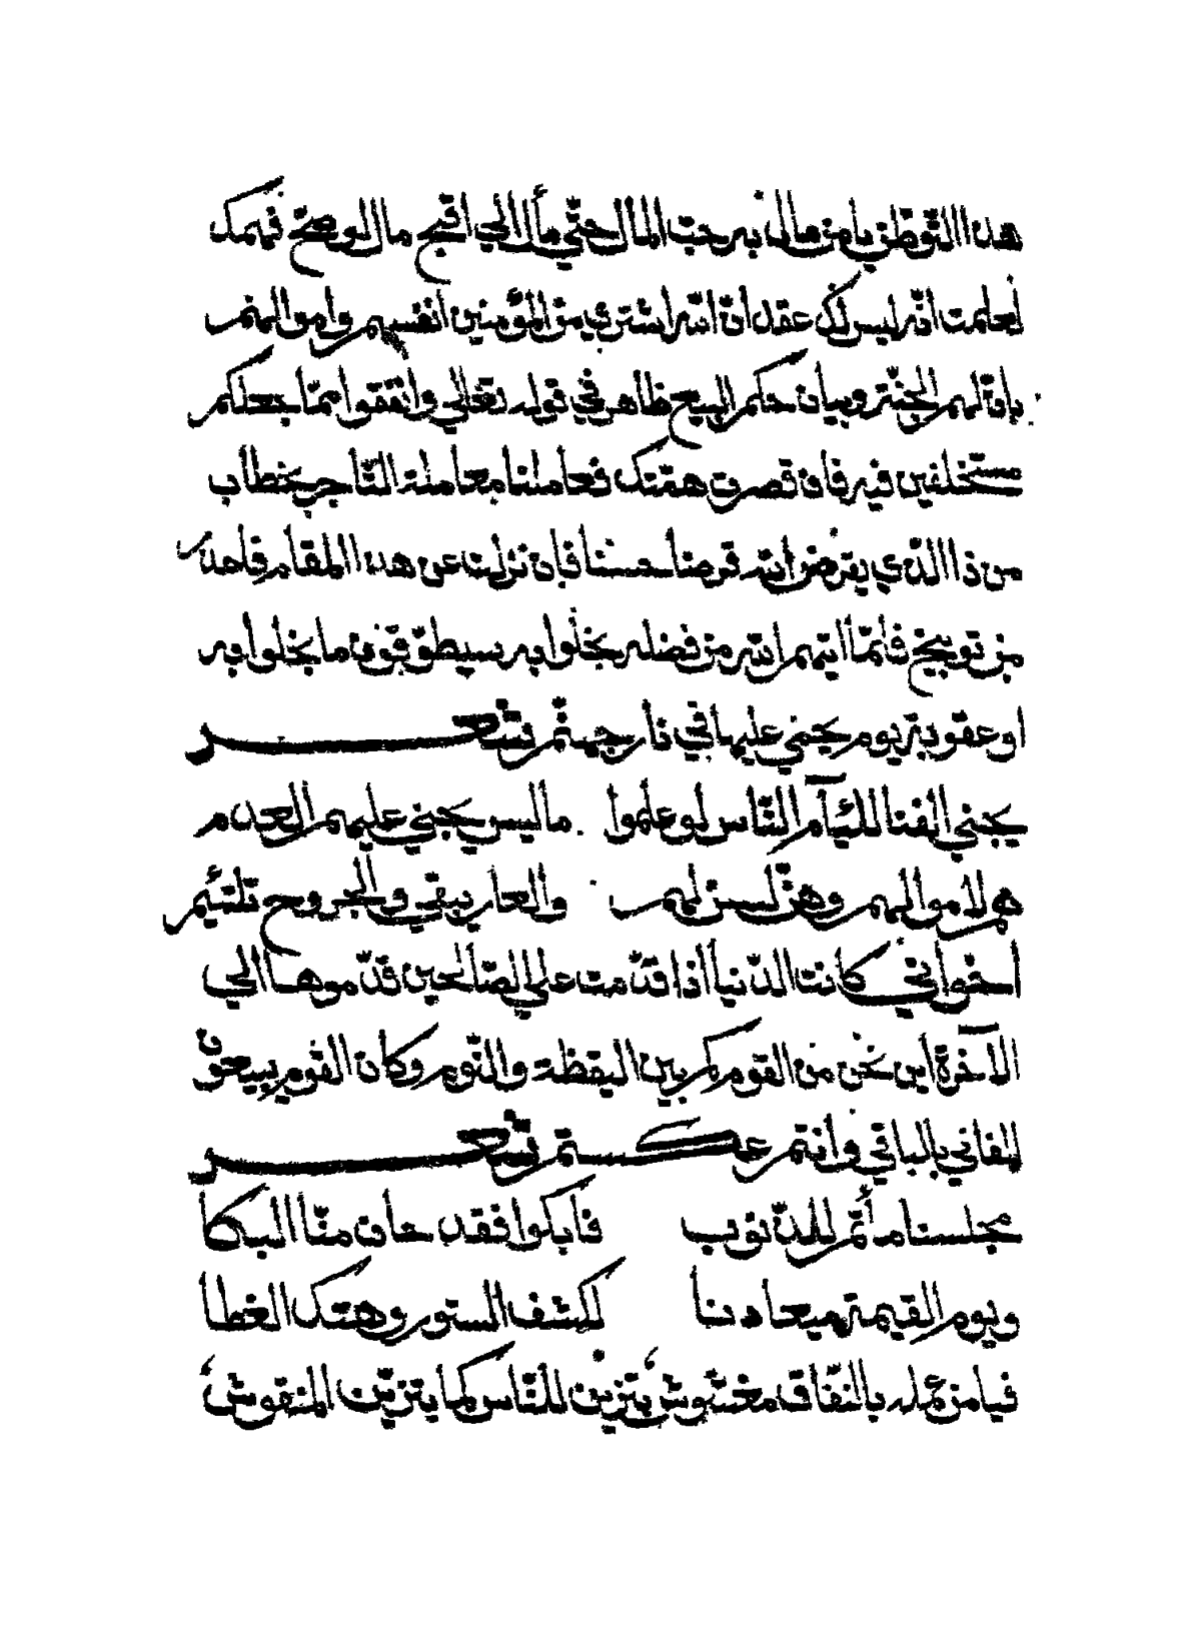 هذا التّوطّن يا من مال به حبّ المال حتّي مأل الي اقبح مال لو صحّ فهمك
لعلمت انّه ليس لك عقد انّ اللّه اشتري من المؤمنين انفسهم واموالهم
بانّ لهم الجنّة وبيان حكم البيع ظاهر في قوله تعالي وانفقوا ممّا جعلكم
مستخلفين فيه فان قصرت همّتك فعاملنا معاملة التّاجر بخطاب
من ذا الّذي يقرض اللّه قرضا حسنا فان نزلت عن هذا المقام فاحذر
من توبيخ فلمّا اتيهم اللّه من فضله بخلوا به سيطوّقون ما بخلوا به
او عقوبة يوم يحمي عليها في نار جهنّم شعر
يجني الغنا للئام النّاس لو علموا ما ليس يجني عليهم العدم
هم لاموالهم وهنّ لسن لهم والعار يبقي والجروح تلتئم
اخواني كانت الدّنيا اذا قدّمت علي الصّالحين قدّموها الي
الآخرة اين نحن من القوم كم بين اليقظة والنّوم وكان القوم يبيعون
الفاني بالباقي وانتم عكستم شعر
مجلسنا مأتم للذّنوب فابكوا فقد حان منّا البكا
ويوم القيمة ميعادنا لكشف الستور وهتك الغطا
فيا من عمله بالنّفاق مغشوش يتزيّن للنّاس كما يتزيّن المنقوش